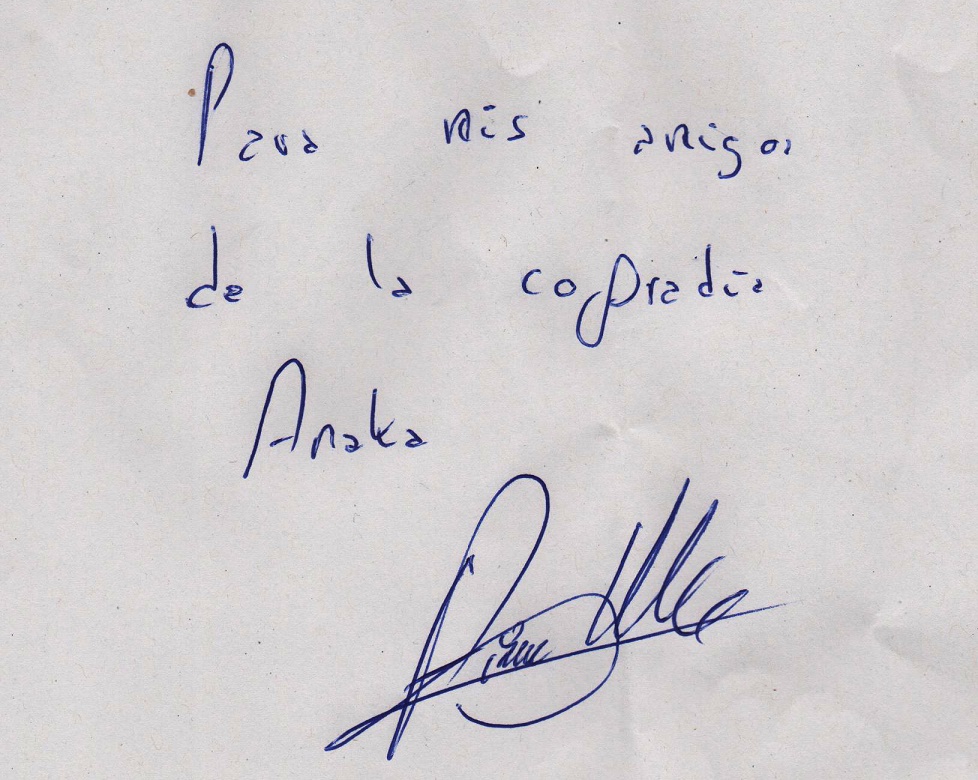 Para mis amigos
de la cofradia
Anaka